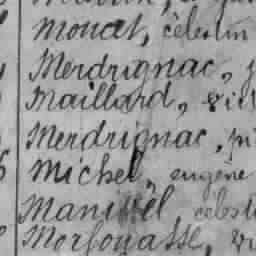 Mouat, célestin
Merdrignac,
Maillard,
Merdrignac,
Michel, eugène
Manivel
Morfouasse,